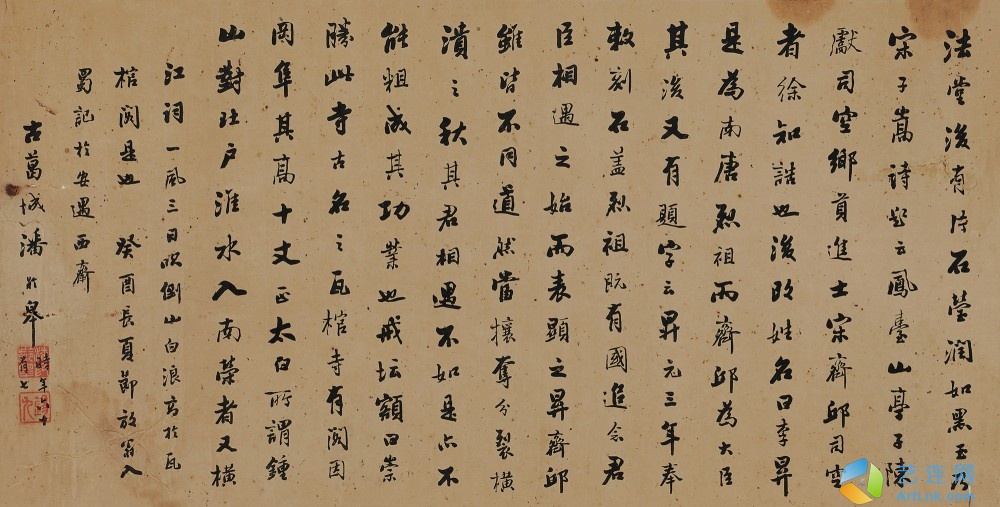 法堂後有片石瑩潤如黑玉乃
宋子嵩詩題云鳳臺山亭子陳
獻司空鄉貢進士宋齊邱司空
者徐知誥也後改姓名曰李昇
是為南唐烈祖而齊邱為大臣
其後又有題字云昇元三年奉
敕刻石蓋烈祖既有國追念君
臣相遇之始而表顯之昇齊邱
雖皆不同道然當攘奪分裂橫
潰之秋其君相遇不如是亦不
能粗成其功業也戒坛額曰崇
勝此寺古名之瓦棺寺有閣因
岡阜其高十丈正太白所謂鍾
山對北户淮水入南榮者又橫
江詞一風三日吹倒山白浪高於瓦
棺閣是也 癸酉長夏節放翁入
蜀記於安遇西齋
古葛城潘齡皋
時年六十
有七
艺连网
ArtLnk.com